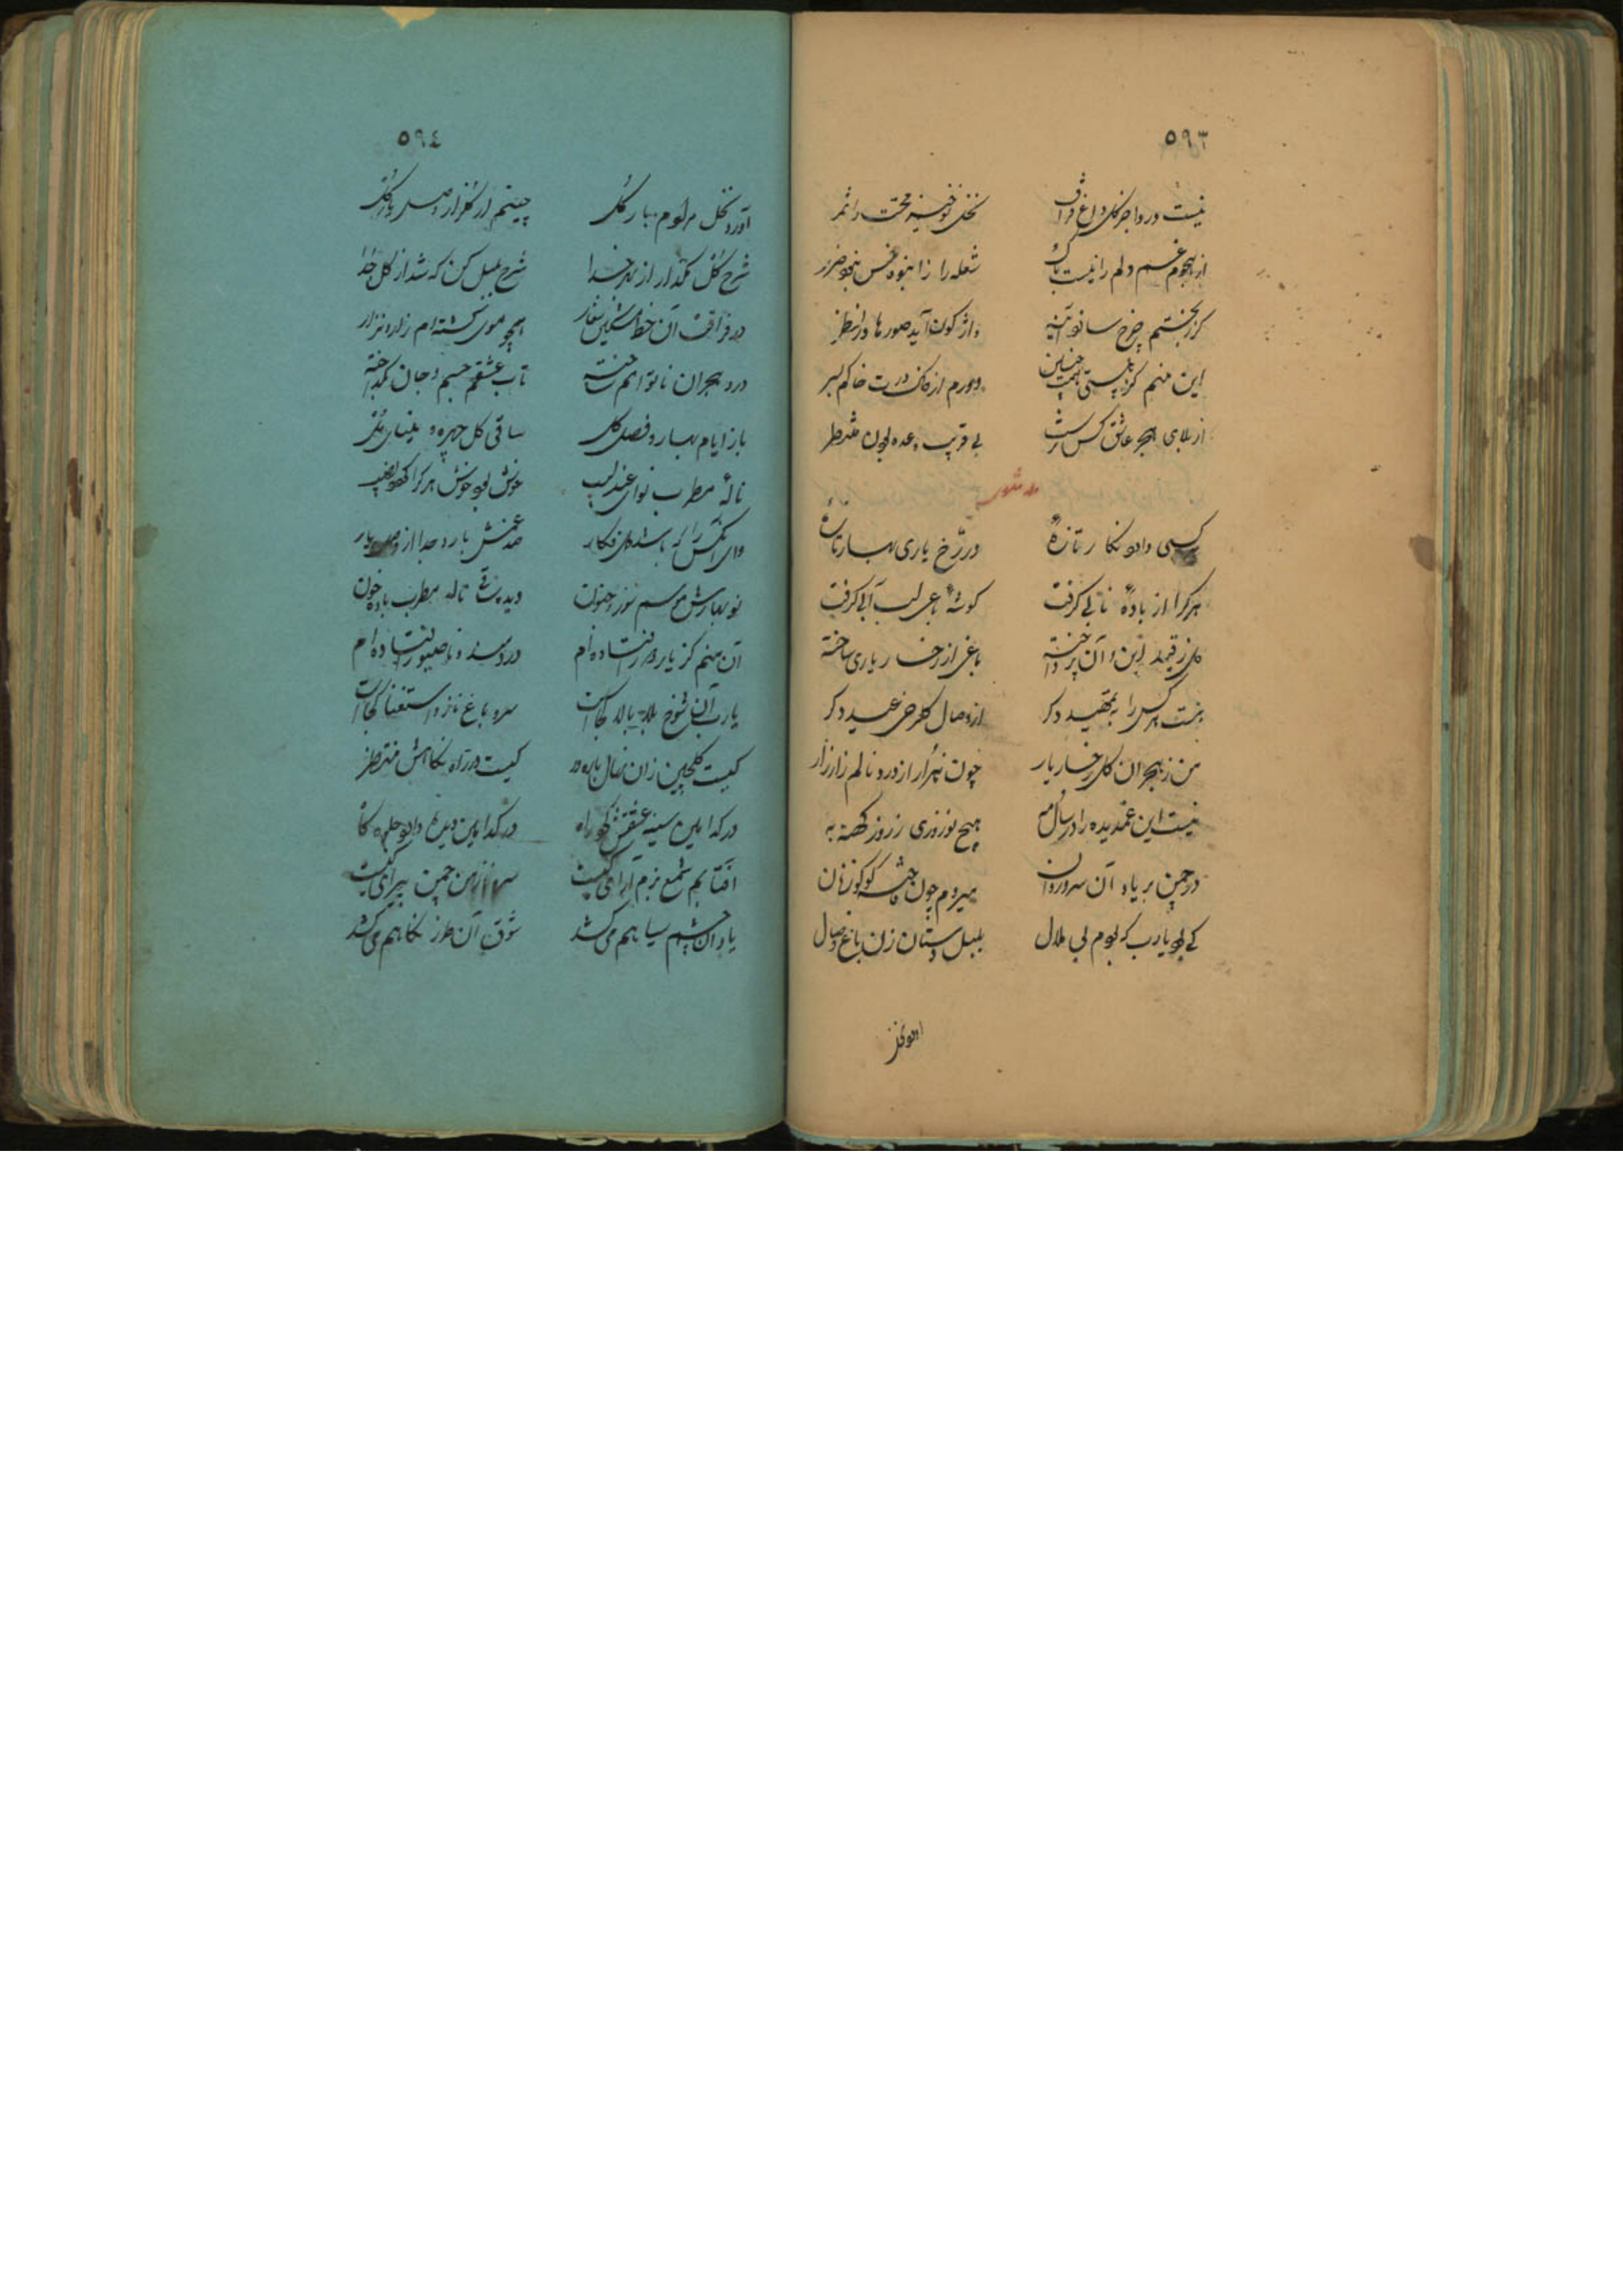 ٥٩٣
نیست در وا جز گل داغ فراق نخل نوخیز محبت را ثمر
از هجوم غم دلم را نیست باک شعله را ز انبوه خس نبود ضرر
کز بختم چرخ سازد آینه واژکون آید صورها در نظر
این منم کز پستی همت چنین دورم از خاک درت خاکم بسر
از بلای هجر عاشق کس نرست بی قریب وعده بودن منتظر
وله مثنوی
هر کسی دارد نکار تازهٔ در رخ یاری بهار تازهٔ
هر کرا از بادهٔ نابی کرفت کوشهٔ باغی لب آبی کرفت
کل ز قید این و آن پرداخته باغی از رخسار یاری ساخته
هست هر کس را بتمهید دکر از وصال کلرخی عید دکر
من ز هجران کل رخسار یار چون هزار از درد نالم زار زار
نیست این غمدیده را در سال و مه هیچ نوروزی ز روز کهنه به
در چمن بر یاد آن سرو روان میروم چون فاخته کوکو زنان
کی بود یارب که بودم بی ملال بلبل دستان زن باغ وصال
٥٩٤
آورد نخل مرادم بار کل چینم از کلزار وصل یار کل
شرح کل بکذار از بهر خدا شرح بلبل کن که شد از کل جدا
در فراقت آن خط مشکین نغار همچو موی کشته‌ام زار و نزار
درد هجران ناتوانم ساخته تاب عشقم جسم و جان بکداخته
باز ایام بهار و فصل کل ساقی کل چهره و مینای مل
نالهٔ مطرب نوای عندلیب خوش بود خوش هر کرا کردد نصیب
وای آنکس را که باشد دلفکار همنش یار و جدا از وصل یار
نوبهارش موسم شور و جنون دیده ساقی ناله مطرب باده خون
آن منم کز یار دور افتاده‌ام دردمند و ناصبور افتاده‌ام
یارب آن شوخ بلا بالا کجاست سرو باغ ناز و استغنا کجاست
کیست کلچین زان نهال بارور کیست در راه نکاهش منتظر
در کدامین سینه عشقش کرد راه در کدامین دیده دارد جلوه کاه
آفتابم شمع بزم آرای کیست سرو نازم چمن پیرای کیست
یاد آن چشم سیاهم می‌کشد شوق آن طرز نکاهم می‌کشد